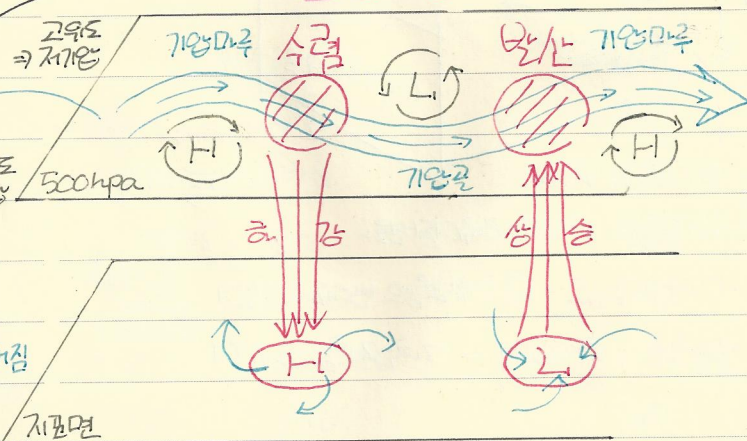 고위도
⇒ 저기압
기압마루
수렴
L
발산
기압마루
H
H
500hpa
기압골
하강
상승
H
L
지표면